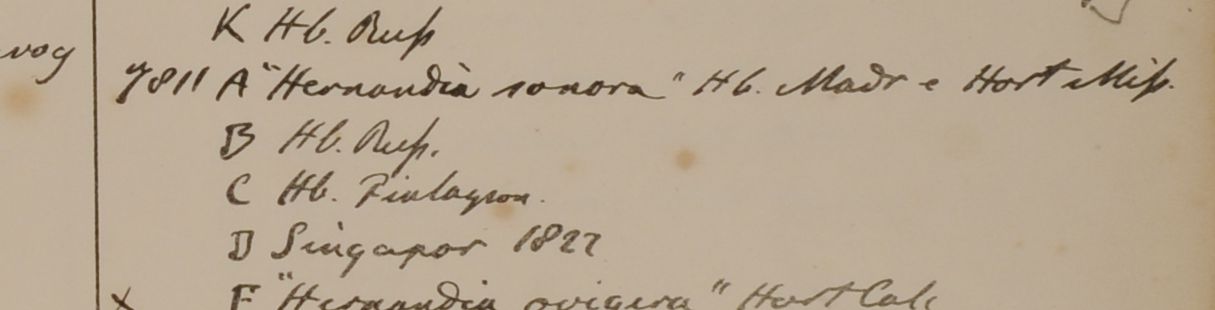 K Hb. Russ
vog
7811 A "Hernandia sonora" Hb. Madr e Hort Miss.
B Hb. Russ.
C Hb. Finlayson.
D Singapor 1822
x E "Hernandia ovigera" Hort Calc